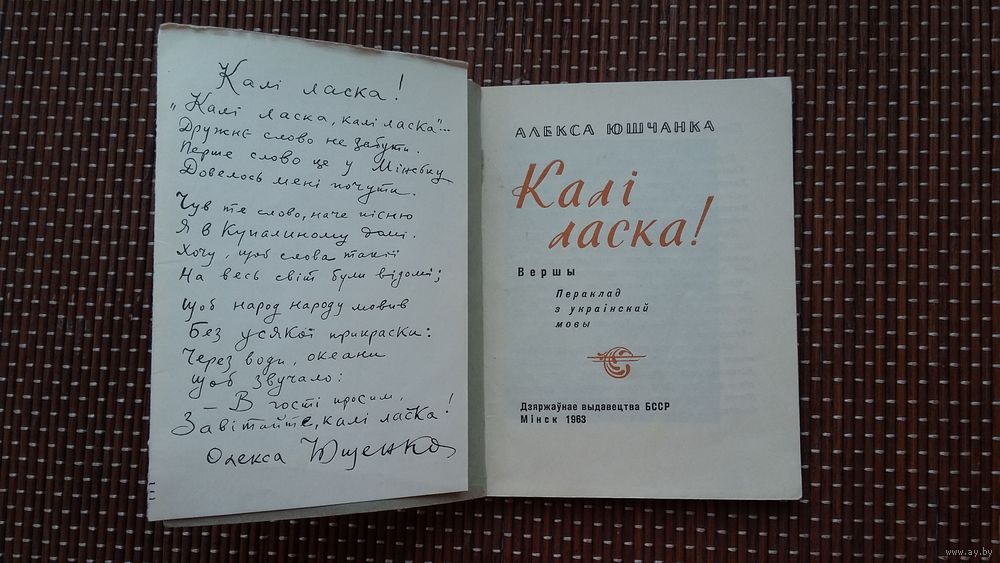 Калі ласка!
"Калі ласка, калі ласка"...
Дружнє слово не забути.
Перше слово це у Мінську
Довелось мені почути.
Чув те слово, наче пісню
Я в Купалиному домі.
Хочу, щоб слова такії
На весь світ були відомі;
Щоб народ народу мовив
Без усякої прикраски:
Через води, океани
Щоб звучало:
– В гості просим,
Завітайте, калі ласка!
Олекса Ющенко
АЛЕКСА ЮШЧАНКА
Калі
ласка!
Вершы
Пераклад
з украінскай
мовы
Дзяржаўнае выдавецтва БССР
Мінск 1963
www.ay.by